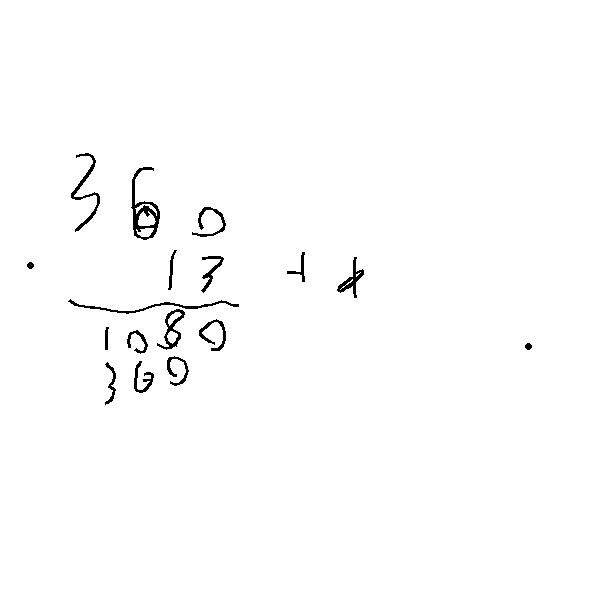 360
13
1080
360